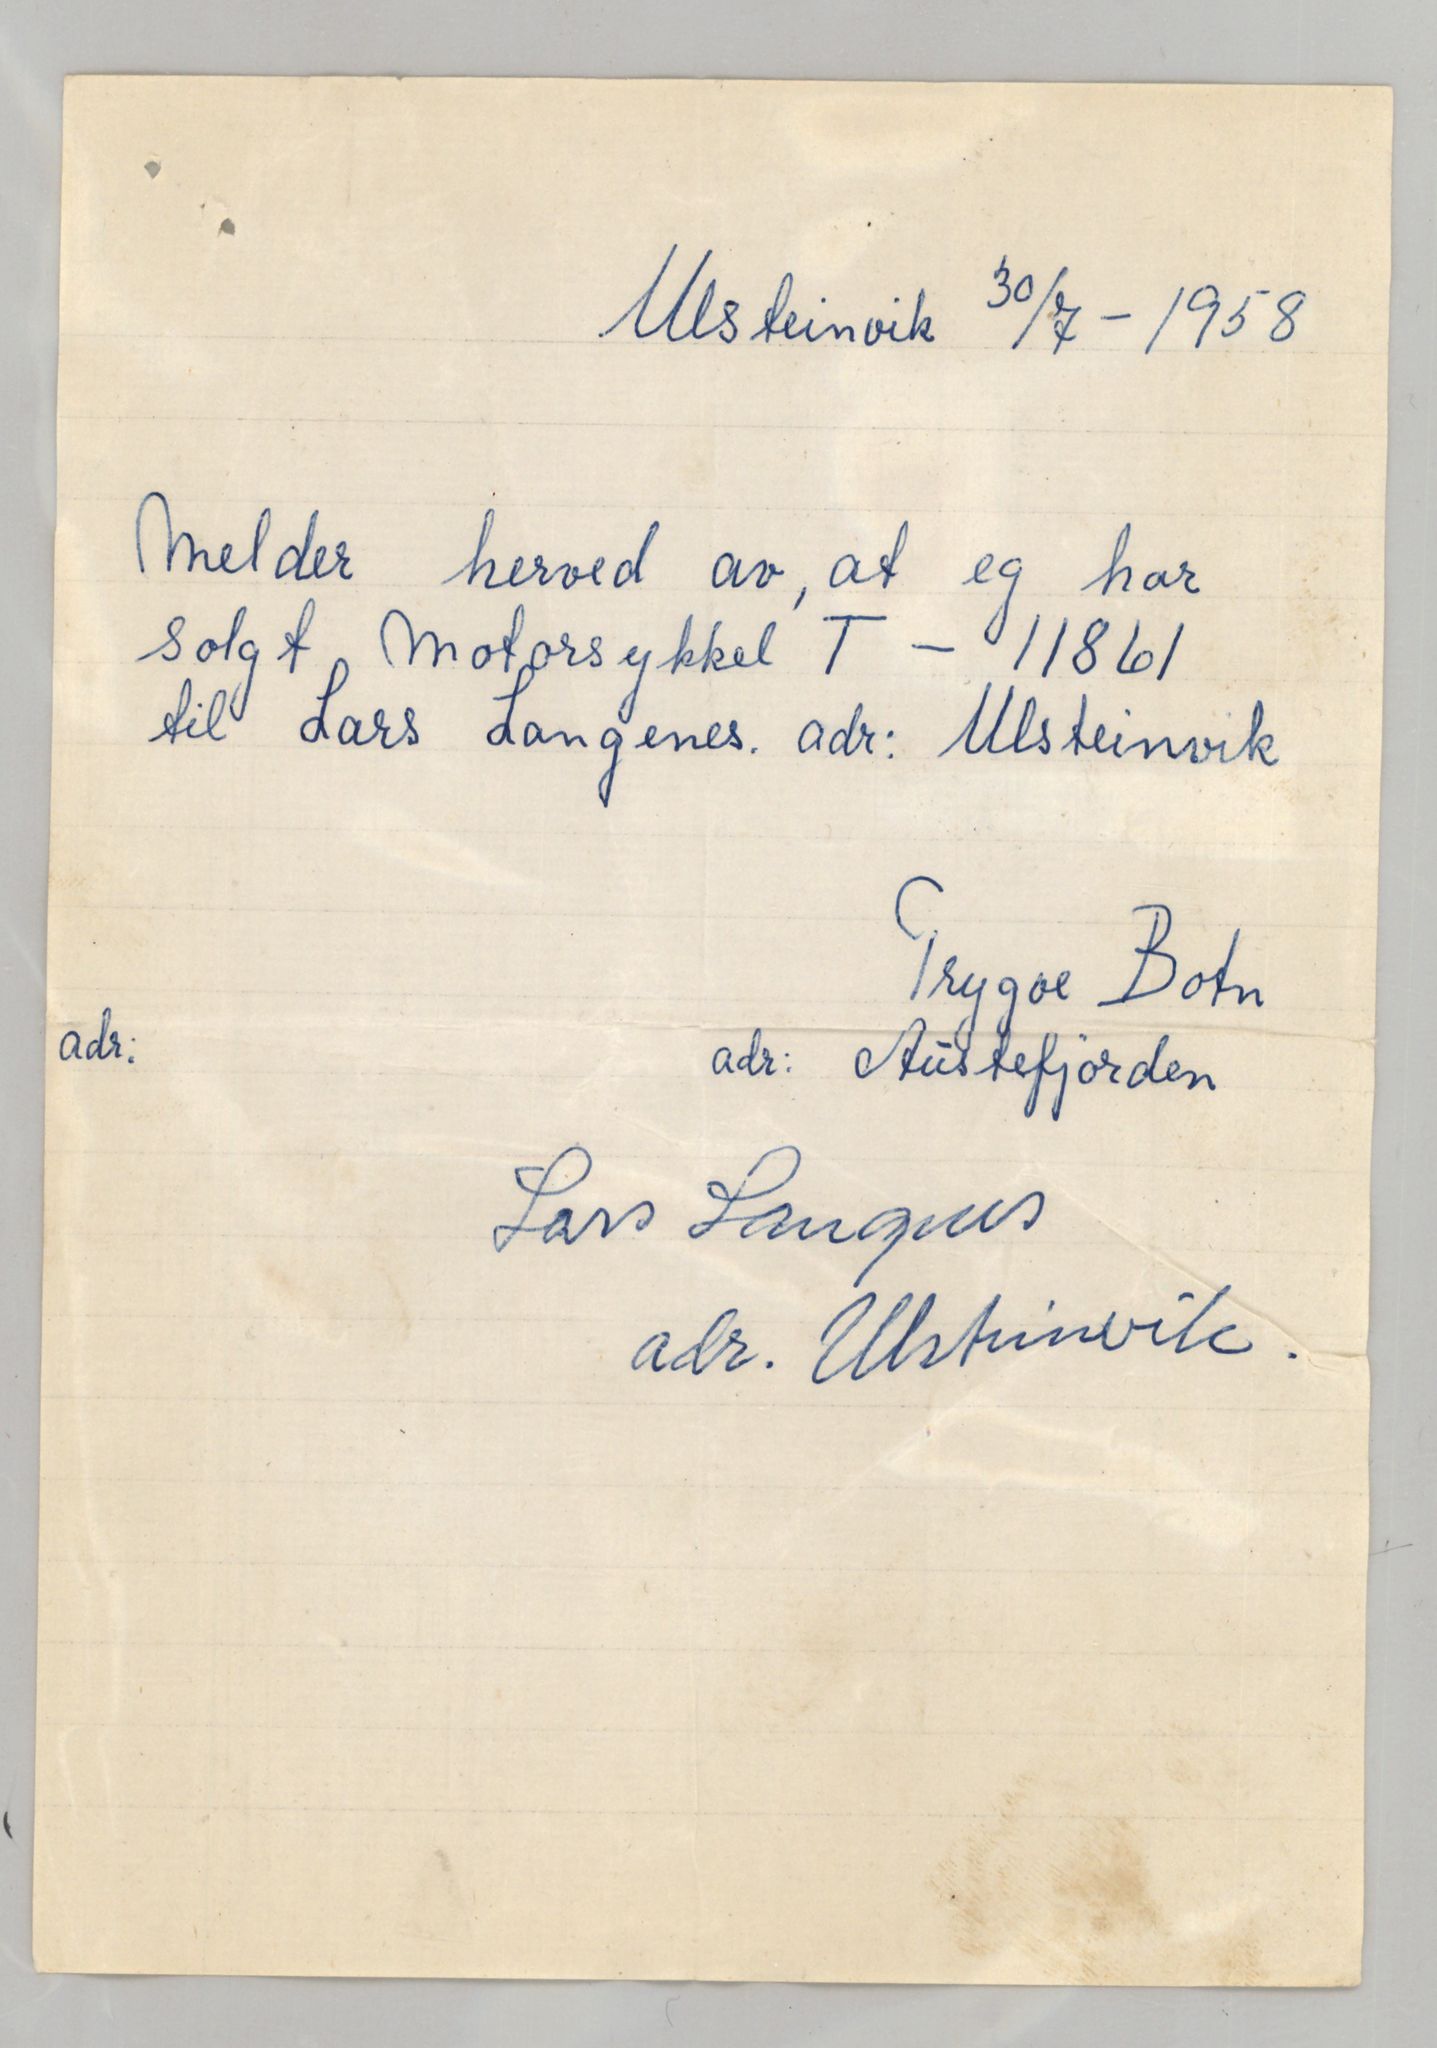 Ulsteinvik 30/7 – 1958
Melder herved av, at eg har
solgt Motorsykkel T – 11861
til Lars Langenes. adr: Ulsteinvik
Trygve Botn
adr:
adr: Austefjorden
Lars Langnes
adr. Ulsteinvik.